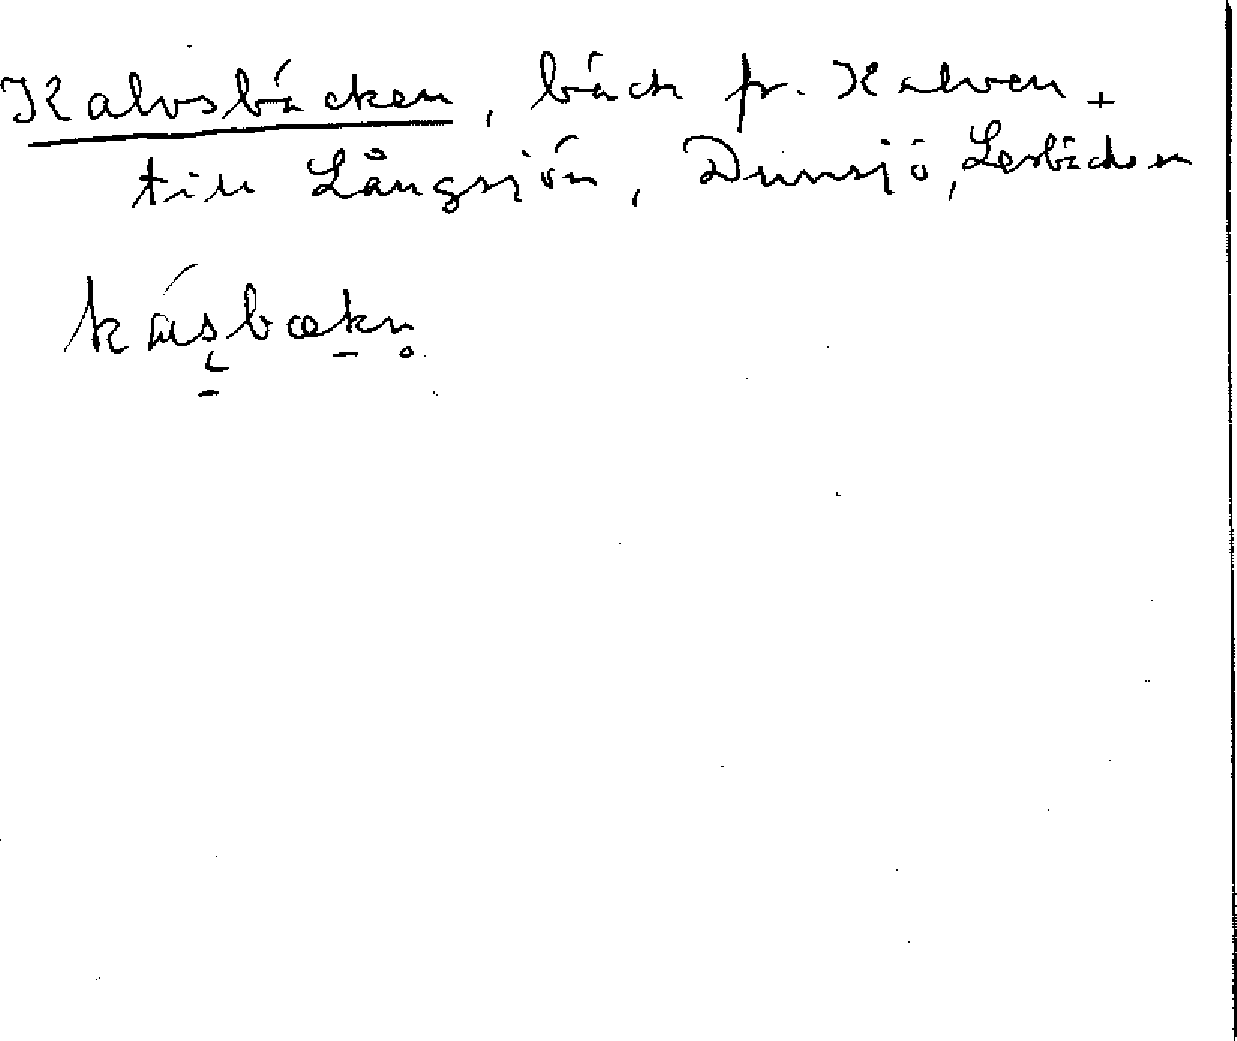 Kalvsbäcken, bäck fr. Kalven +
till Långsjön, Dunsjö, Lerbäcken
kásbækn̥